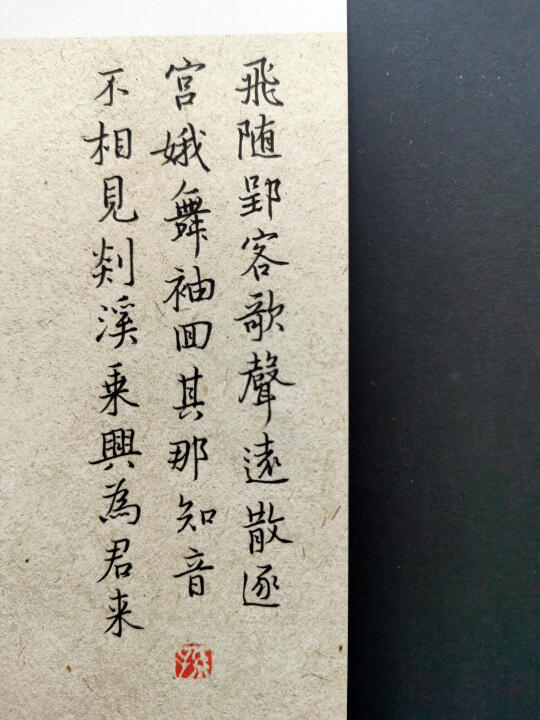 飛随郢客歌聲遠散逐
宮娥舞袖回其那知音
不相見剡溪乗興為君来